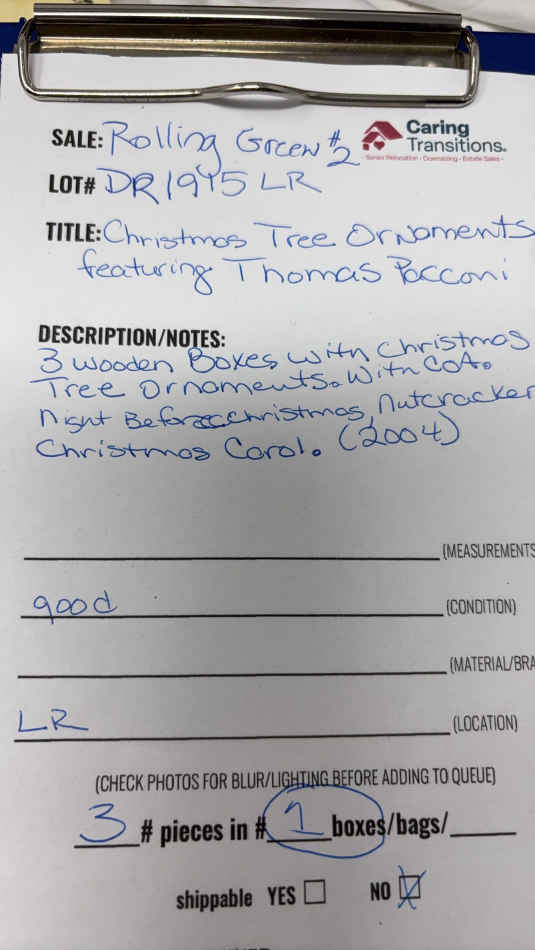 SALE: Rolling Green #2
Caring
Transitions.
Senior Relocation • Downsizing • Estate Sales
LOT# DR1945 LR
TITLE: Christmas Tree Ornaments
featuring Thomas Pacconi
DESCRIPTION/NOTES:
3 wooden Boxes with Christmas
Tree Ornaments. With COA.
Night Before Christmas, Nutcracker
Christmas Carol. (2004)
(MEASUREMENTS
good (CONDITION)
(MATERIAL/BRA
LR (LOCATION)
(CHECK PHOTOS FOR BLUR/LIGHTING BEFORE ADDING TO QUEUE)
3 # pieces in # 1 boxes/bags/
shippable YES NO